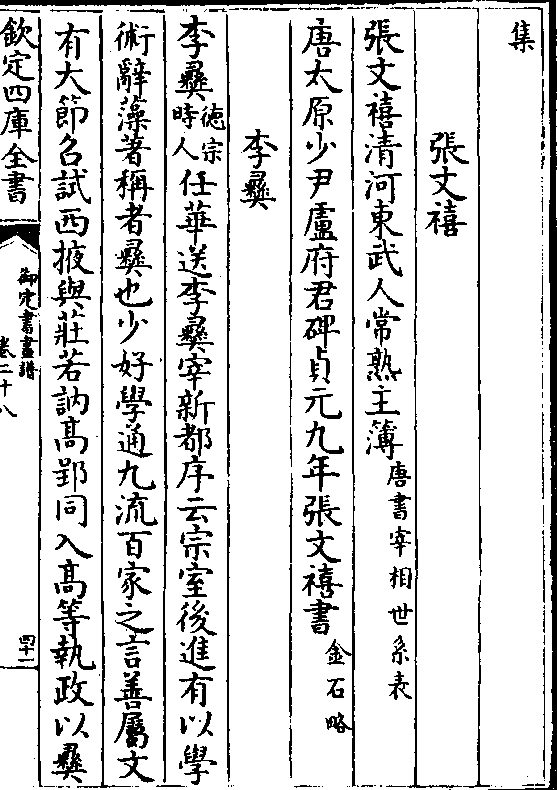 集
張文禧
張文禧清河東武人常熟主簿唐書宰相世系表
唐太原少尹盧府君碑貞元九年張文禧書金石略
李彝
李彝德宗時人任華送李彝宰新都序云宗室後進有以學
術辭藻著稱者彝也少好學通九流百家之言善屬文
有大節召試西掖與莊若訥高郢同入高等執政以彝
欽定四庫全書
御定書畫譜
卷二十八
四十二